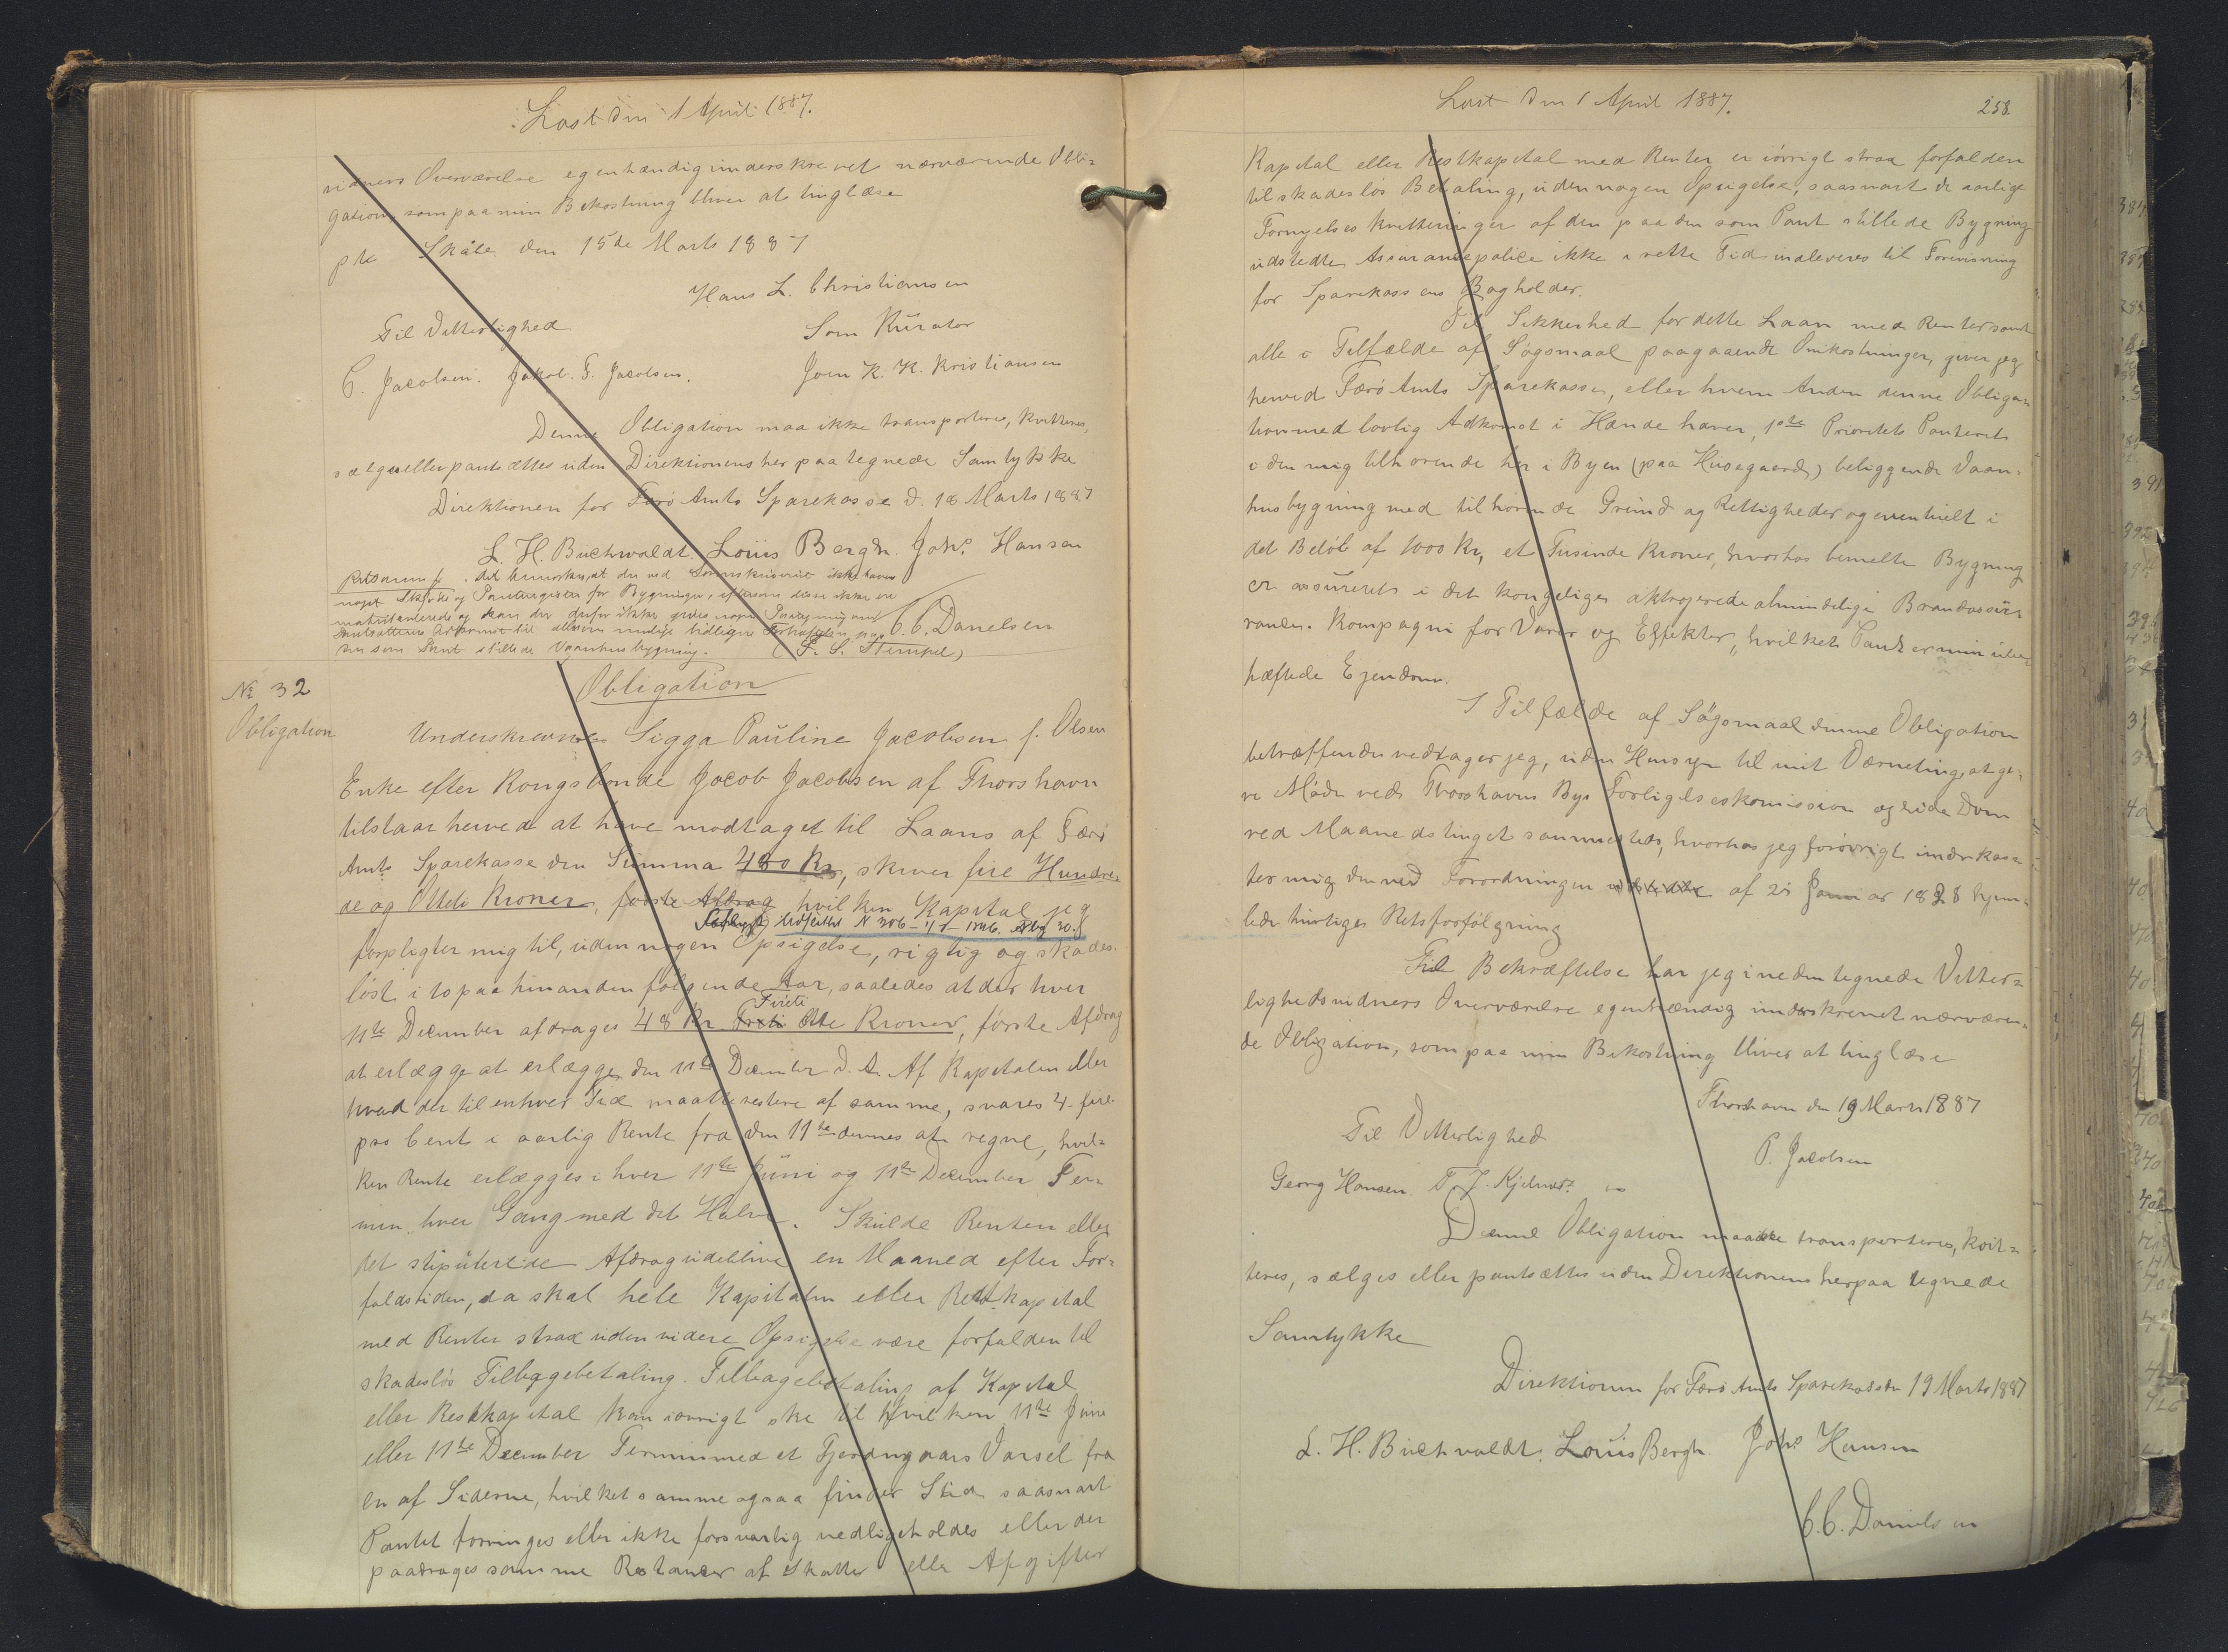 Læst den 1 April 1887.
vidners Overværelse egenhændig underskrevet nærværende Obli=
gation, som paa min Bekostning bliver at tinglæse
pt Skåle den 15de Marts 1887
Hans L. Christiansen
Til Vitterlighed Som Kurator
C. Jacobsen. Jakob. F. Jacobsen. Joen K. K. Kristiansen
Denne Obligation maa ikke transporteres, kvitteres,
sælges eller pantsættes uden Direktionens her paategnede Samtykke
Direktionen for Færø Amts Sparekasse d. 18 Marts 1887
L. H. Buchwaldt. Louis Bergh. Johs. Hansen
det bemærkes, at der ved Sorenskriveriet ikke haves
noget Skjøde og Panteregister for Bygninger, eftersom disse ikke ere
matrikulerede og kan der derfor ikke gives nogen
C. C. Danielsen
den som Pant stillede Vaanhusbygning. (L. S. Stempel)
№ 32
Obligation
Obligation
Underskrevne Sigga Pauline Jacobsen f. Olsen
Enke efter Kongsbonde Jacob Jacobsen af Thorshavn
tilstaar herved at have modtaget til Laans af Færø
Amts Sparekasse den Summa 480 Kr, skriver fire Hundre=
de og Otteti Kroner, første Afdrag hvilken Kapital jeg
Udslettet N 306
forpligter mig til, uden nogen Opsigelse, rigtig og skades=
løst i to paa hinanden følgende Aar, saaledes at der hver
Fireti
11te December afdrages 48 Kr Otte Kroner, første Afdrag
at erlægge at erlægge den 11te December d. A. Af Kapitalen eller
hvad der til enhver Tid maatte restere af samme, svares 4 fire
pro Cent i aarlig Rente fra den 11te dennes at regne, hvil=
ken Rente erlægges i hver 11te Juni og 11te December Ter=
min, hver Gang med det Halve. Skulde Renten eller
det stipulerede Afdrag udeblive en Maaned efter For=
faldstiden, da skal hele Kapitalen eller Restkapital
med Renter strax uden videre Opsigelse være forfalden til
skadesløs Tilbagebetaling. Tilbagebetaling af Kapital
eller Restkapital kan iøvrigt ske til hvilken 11te Juni
eller 11te December Termin med et Fjerdingaars Varsel fra
en af Siderne, hvilket samme ogsaa finder Sted saasnart
Pantet forringes eller ikke forsvarlig vedligeholdes eller der
paadrages samme Restancer af Skatter eller Afgifter
Læst den 1 April 1887.
258.
Kapital eller Restkapital med Renter er iøvrigt strax forfalden
til skadesløs Betaling, uden nogen Opsigelse, saasnart de aarlige
Fornyelses kvitteringer af den paa den som Pant stillede Bygning
udstedte Assurancepolice ikke i rette Tid indleveres til Forevisning
for Sparekassens Bogholder.
Til Sikkerhed for dette Laan med Renter samt
alle i Tilfælde af Søgsmaal paagaaende Omkostninger, giver jeg
herved Færø Amts Sparekasse, eller hvem Anden denne Obliga=
tion med lovlig Adkomst i Hænde haver, 1ste Prioritets Panteret
i den mig tilhørende her i Byen (paa Husegaard) beliggende Vaan=
husbygning med tilhørende Grund og Rettigheder og eventuelt i
det Beløb af 1000 Kr, et Tusinde Kroner, hvorhos bemelte Bygning
er assureret i det kongelige oktrojerede almindelige Brandassu=
rance Kompagni for Varer og Effekter, hvilket Pant er min ube=
hæftede Ejendom.
I Tilfælde af Søgsmaal denne Obligation
betræffende vedtager jeg, uden Hensyn til mit Værneting, at gi=
ve Møde ved Thorshavns Bys Forligelseskomission og lide Dom
ved Maanedstinget sammesteds, hvorhos jeg forøvrigt underkas=
ter mig den ved Forordningen af 25 Januar 1828 hjem=
lede hurtige Retsforfølgning
Til Bekræftelse har jeg i nedentegnede Vitter=
lighedsvidners Overværelse egenhændig underskrevet nærværen=
de Obligation, som paa min Bekostning bliver at tinglæse
Thorshavn den 19 Marts 1887
Til Vitterlighed
P. Jacobsen
Georg Hansen.
Denne Obligation maa ikke transporteres, kvit=
teres, sælges eller pantsættes uden Direktionens herpaa tegnede
Samtykke
Direktionen for Færø Amts Sparekasse 19 Marts 1887
L. H. Buchwaldt. Louis Bergh. Johs Hansen
C. C. Danielsen